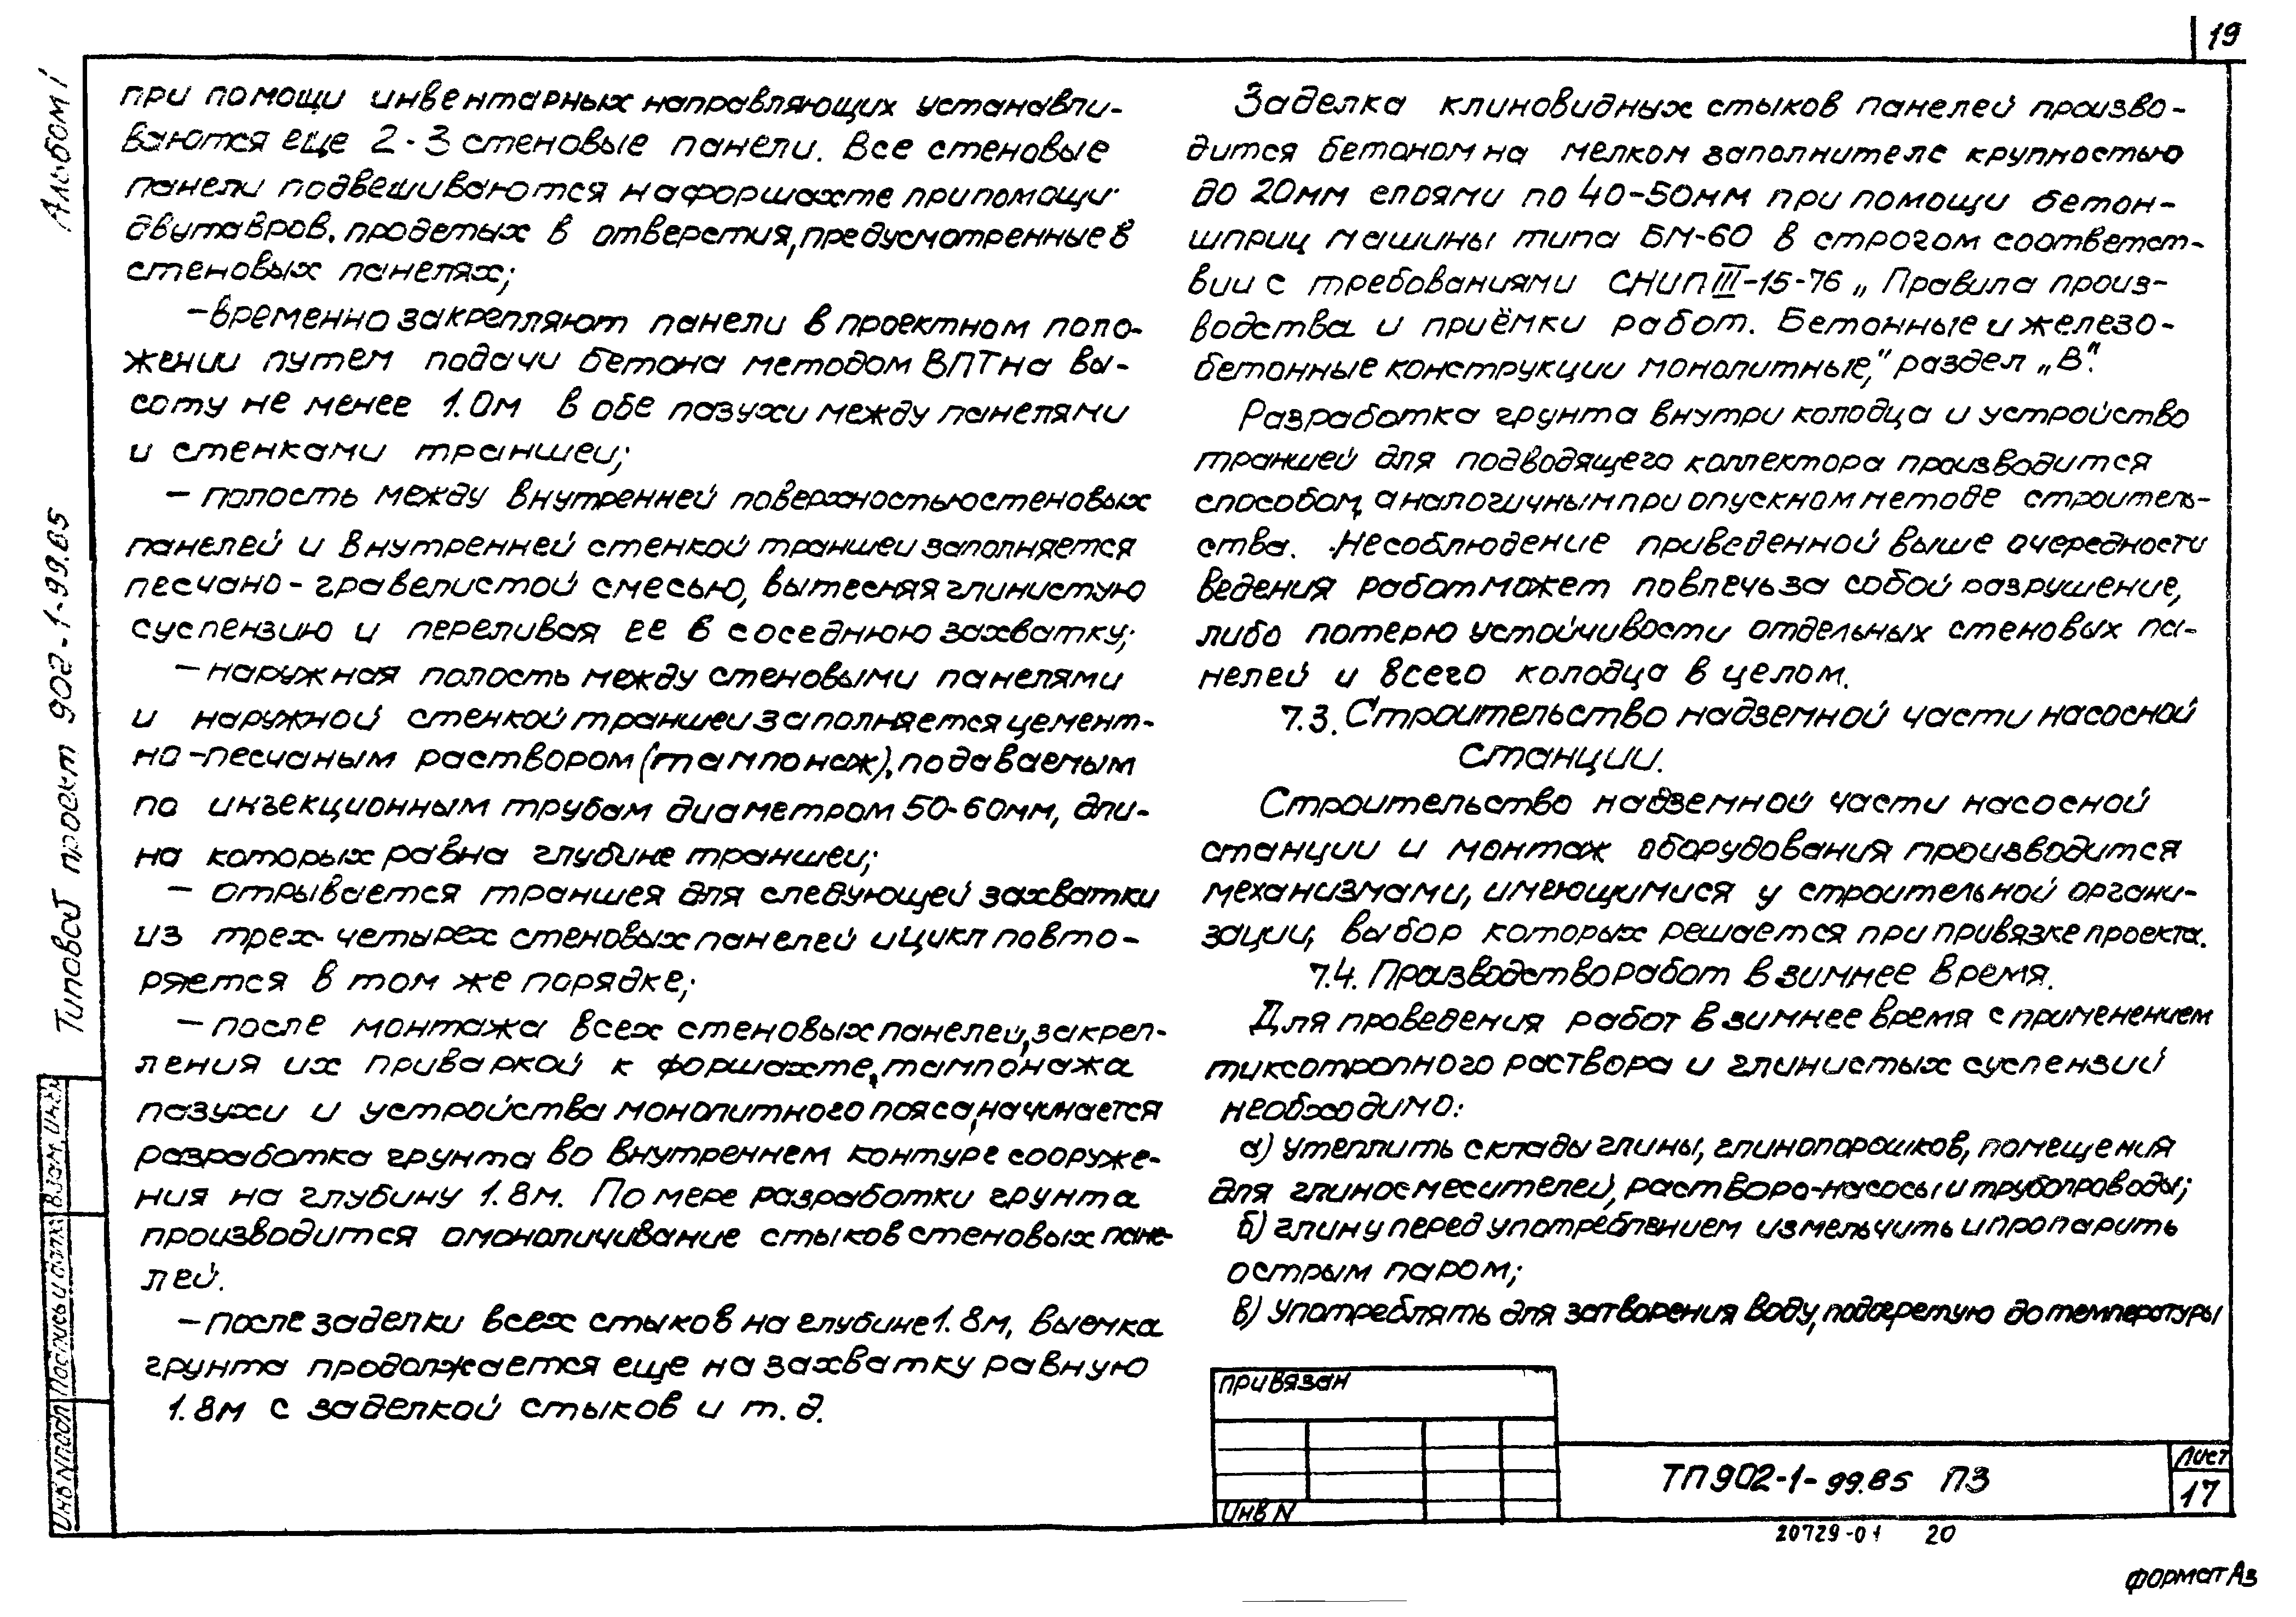 19
Альбом I
Типовой проект 902-1-99.85
при помощи инвентарных направляющих устанавли-
ваются еще 2-3 стеновые панели. Все стеновые
панели подвешиваются на форшахте при помощи
двутавров, продетых в отверстия, предусмотренные в
стеновых панелях;
-временно закрепляют панели в проектном поло-
жении путем подачи бетона методом ВПТ на вы-
соту не менее 1.0м в обе пазухи между панелями
и стенками траншеи;
- полость между внутренней поверхностью стеновых
панелей и внутренней стенкой траншеи заполняется
песчано-гравелистой смесью, вытесняя глинистую
суспензию и переливая ее в соседнюю захватку;
-наружная полость между стеновыми панелями
и наружной стенкой траншеи заполняется цемент-
но-песчаным раствором (тампонаж), подаваемым
по инъекционным трубам диаметром 50-60мм, дли-
на которых равна глубине траншеи;
- отрывается траншея для следующей захватки
из трех-четырех стеновых панелей и цикл повто-
ряется в том же порядке;
-после монтажа всех стеновых панелей, закреп-
ления их приваркой к форшахте, тампонажа
пазухи и устройства монолитного пояса, начинается
разработка грунта во внутреннем контуре сооруже-
ния на глубину 1.8м. По мере разработки грунта
производится омоноличивание стыков стеновых пане-
лей.
-после заделки всех стыков на глубине 1.8м, выемка
грунта продолжается еще на захватку равную
1.8м с заделкой стыков и т.д.
Заделка клиновидных стыков панелей произво-
дится бетоном на мелком заполнителе крупностью
до 20мм слоями по 40-50мм при помощи бетон-
шприц машины типа БМ-60 в строгом соответст-
вии с требованиями СНиП III-15-76 „Правила произ-
водства и приёмки работ. Бетонные и железо-
бетонные конструкции монолитные", раздел „В".
Разработка грунта внутри колодца и устройство
траншей для подводящего коллектора производится
способом, аналогичным при опускном методе строитель-
ства. Несоблюдение приведенной выше очередности
ведения работ может повлечь за собой разрушение,
либо потерю устойчивости отдельных стеновых па-
нелей и всего колодца в целом.
7.3. Строительство надземной части насосной
станции.
Строительство надземной части насосной
станции и монтаж оборудования производится
механизмами, имеющимися у строительной органи-
зации, выбор которых решается при привязке проекта.
7.4. Производство работ в зимнее время.
Для проведения работ в зимнее время с применением
тиксотропного раствора и глинистых суспензий
необходимо:
а) утеплить склады глины, глинопорошков, помещения
для глиносмесителей, растворо-насосы и трубопроводы;
б) глину перед употреблением измельчить и пропарить
острым паром;
в) употреблять для затворения воду, подогретую до температуры
привязан
Инв N
ТП 902-1-99.85 ПЗ
Лист
17
Инв N подл Подпись и дата Взам. инв N
20729-01 20
формат А3